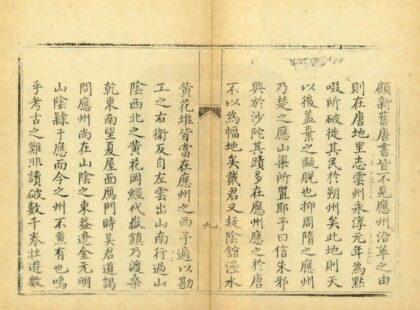 顧新舊唐書皆不見應州沿革之由
則在唐地里志雲州永淳元年為黙
啜所破徙其民於朔州矣此地則天
以後蓋棄之甌脫也抑周隋之應州
乃楚之應山梁所置耶予曰信朱邪
興於沙陀其蹟多在應州應之於唐
不以為幅地矣戴君又疑陰館㶟水
九
黃花堆皆當在應州之西予適以勘
工之右衛反自左雲出山南行過山
陰西北之黃花岡經代嶽鎮乃渡桑
乾東南望夏屋面鴈門時吴君道謁
問應州尚在山陰之東益遼金元明
山陰隸于應而今之州不熏有也嗚
乎考古之難非讀破數千卷壯遊數